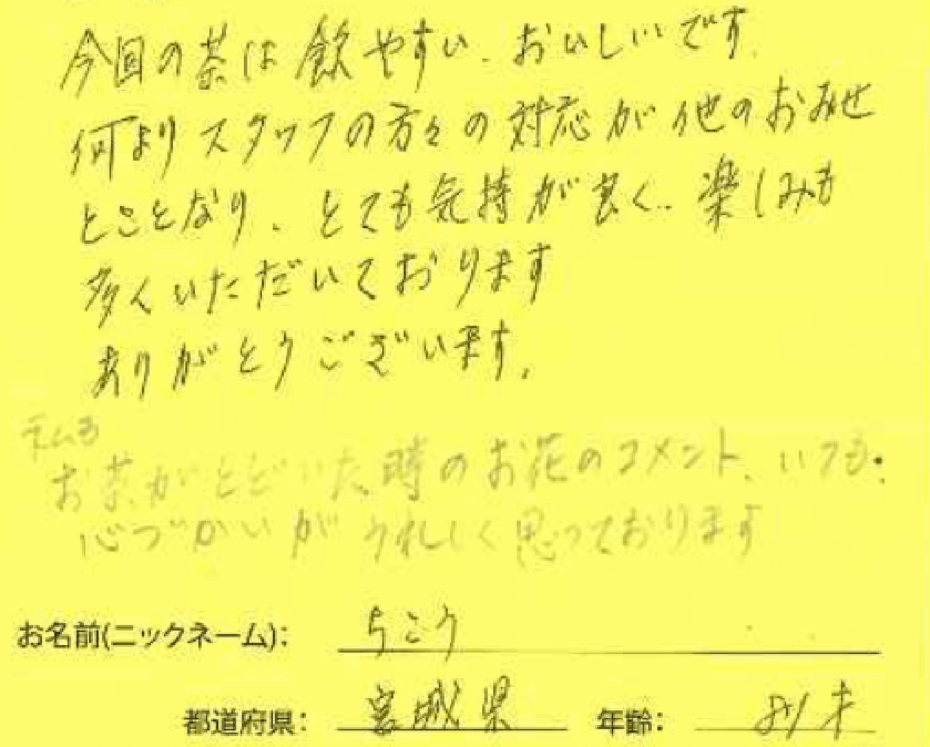 今回の茶は飲やすい、おいしいです。
何よりスタッフの方々の対応が他のおみせ
とことなり、とても気持が良く、楽しみも
多くいただいております
ありがとうございます。
私も
お茶がとどいた時のお花のコメント、いつも、
心づかいがうれしく思っております
お名前(ニックネーム): ちこう
都道府県: 宮城県 年齢: